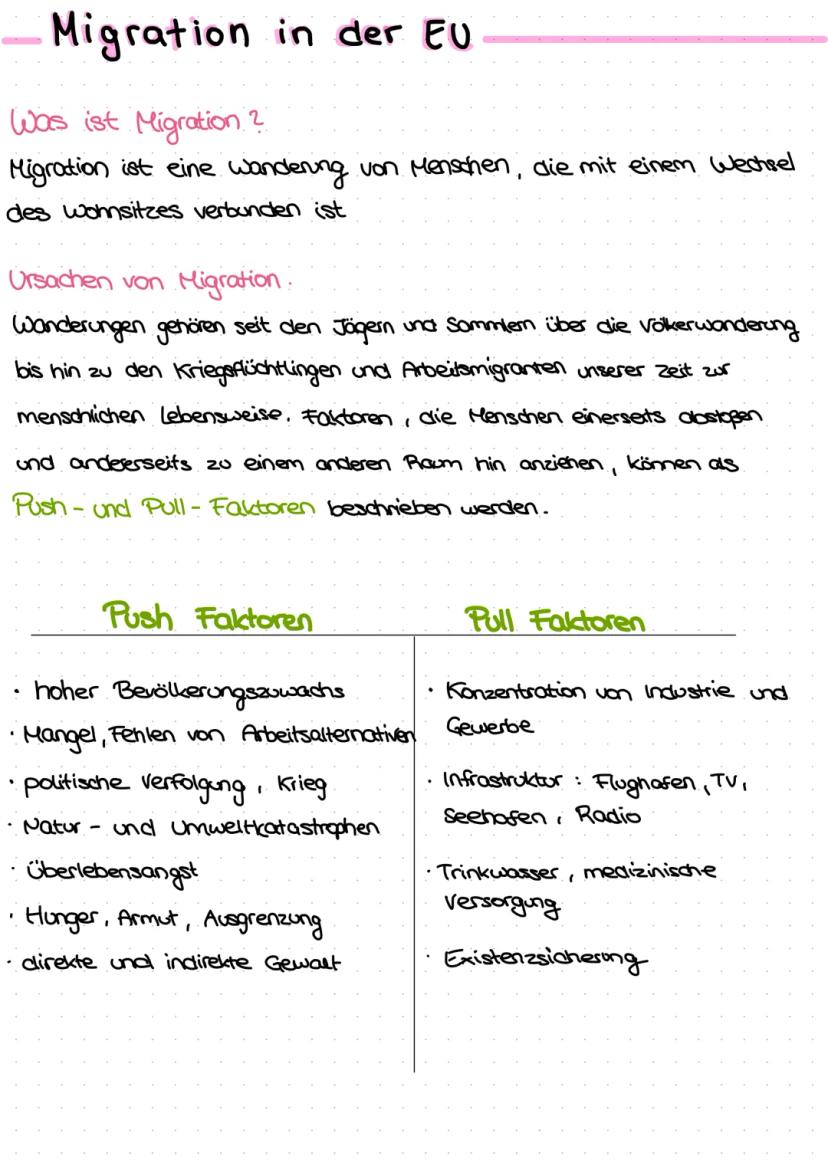 Migration in der EU
Was ist Migration?
Migration ist eine Wanderung von Menschen, die mit einem Wechsel
des Wohnsitzes verbunden ist
Ursachen von Migration.
Wanderungen gehören seit den Jägern und Sammlern über die Völkerwanderung
bis hin zu den Kriegsflüchtlingen und Arbeitsmigranten unserer Zeit zur
menschlichen Lebensweise. Faktoren, die Menschen einerseits abstoßen
und andeerseits zu einem anderen Raum hin anziehen, können als
Push- und Pull-Faktoren beschrieben werden.
Push Faktoren
· hoher Bevölkerungszuwachs
· Mangel, Fehlen von Arbeitsalternativen
· politische Verfolgung, Krieg
· Natur- und Umweltkatastrophen
· Überlebensangst
· Hunger, Armut, Ausgrenzung
· direkte und indirekte Gewalt
Pull Faktoren
· Konzentration von Industrie und
Gewerbe
· Infrastruktur: Flughafen, TV,
Seehafen, Radio
· Trinkwasser, medizinische
Versorgung
· Existenzsicherung